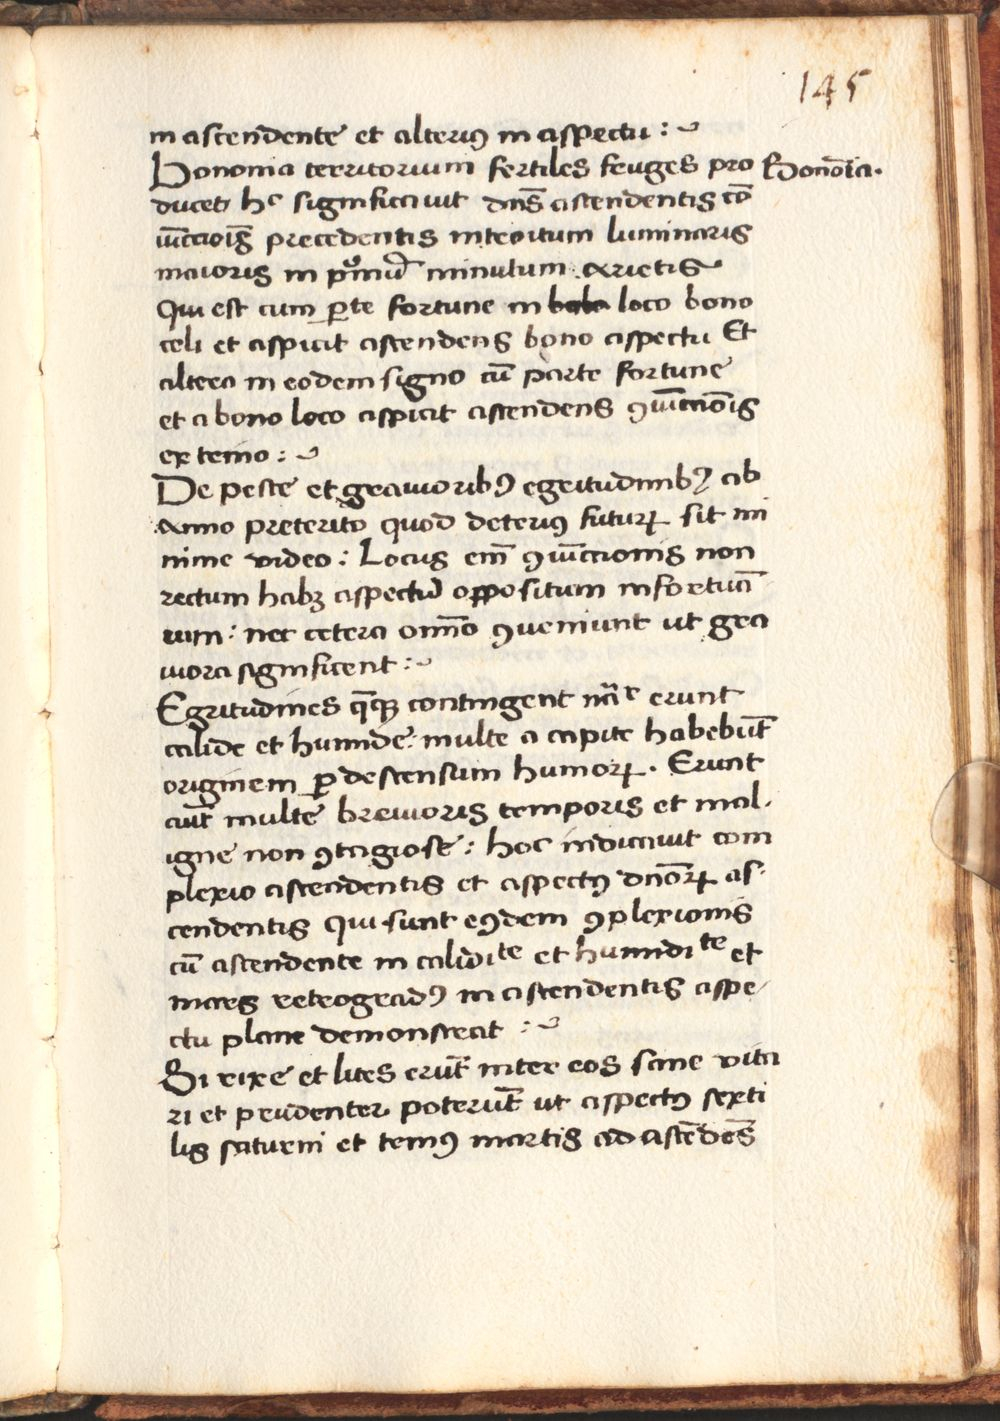 145
in ascendente et alteriꝰ in aspectu :
Bononia territorium fertiles feuges pro
Bonōia.
ducet hᶜ significauit dn̄s ascendentis cō
iūctiōis̄ precedentis introitum luminaris
maioris in pͦmū minutum Arietis
Qui est cum ꝑte fortune in loco bono
celi et aspicit ascendens bono aspectu Et
altera in eodem signo cū parte fortune
et a bono loco aspicit ascendens ꝯiūctiōis
ex teino :
De peste et grauioribꝰ egritudinibꝰ ab
Anno preterito quod deteriꝰ futurꝝ sit mi
nime video : Locus em̄ ꝯiūctionis non
rectum habꝫ aspectū oppositum infortuā
rum : nec cetera om̄o ꝯueniunt ut gra
uiora significent :
Egritudines q̄qꝫ contingent erunt
calide et humide : multe a capite habebūt
originem ꝑ descensum humorꝝ . Erunt
aūt multe breuioris temporis et mal.
igne non ꝯtagiose : hoc indicauit com
plexio ascendentis et aspectꝰ dn̄orꝝ as
cendentis qui sunt eꝰdem ꝯplexionis
cū ascendente in calidiᵗᵉ et humidiᵗᵉ et
mars retrogradꝰ in ascendentis aspe
ctu plane demonstrat :
Si rixe et lites erūt inter eos sane vita
ri et prudenter poterūt ut aspectꝰ sexti
lis saturni et ternꝰ martis ad ascēdēs